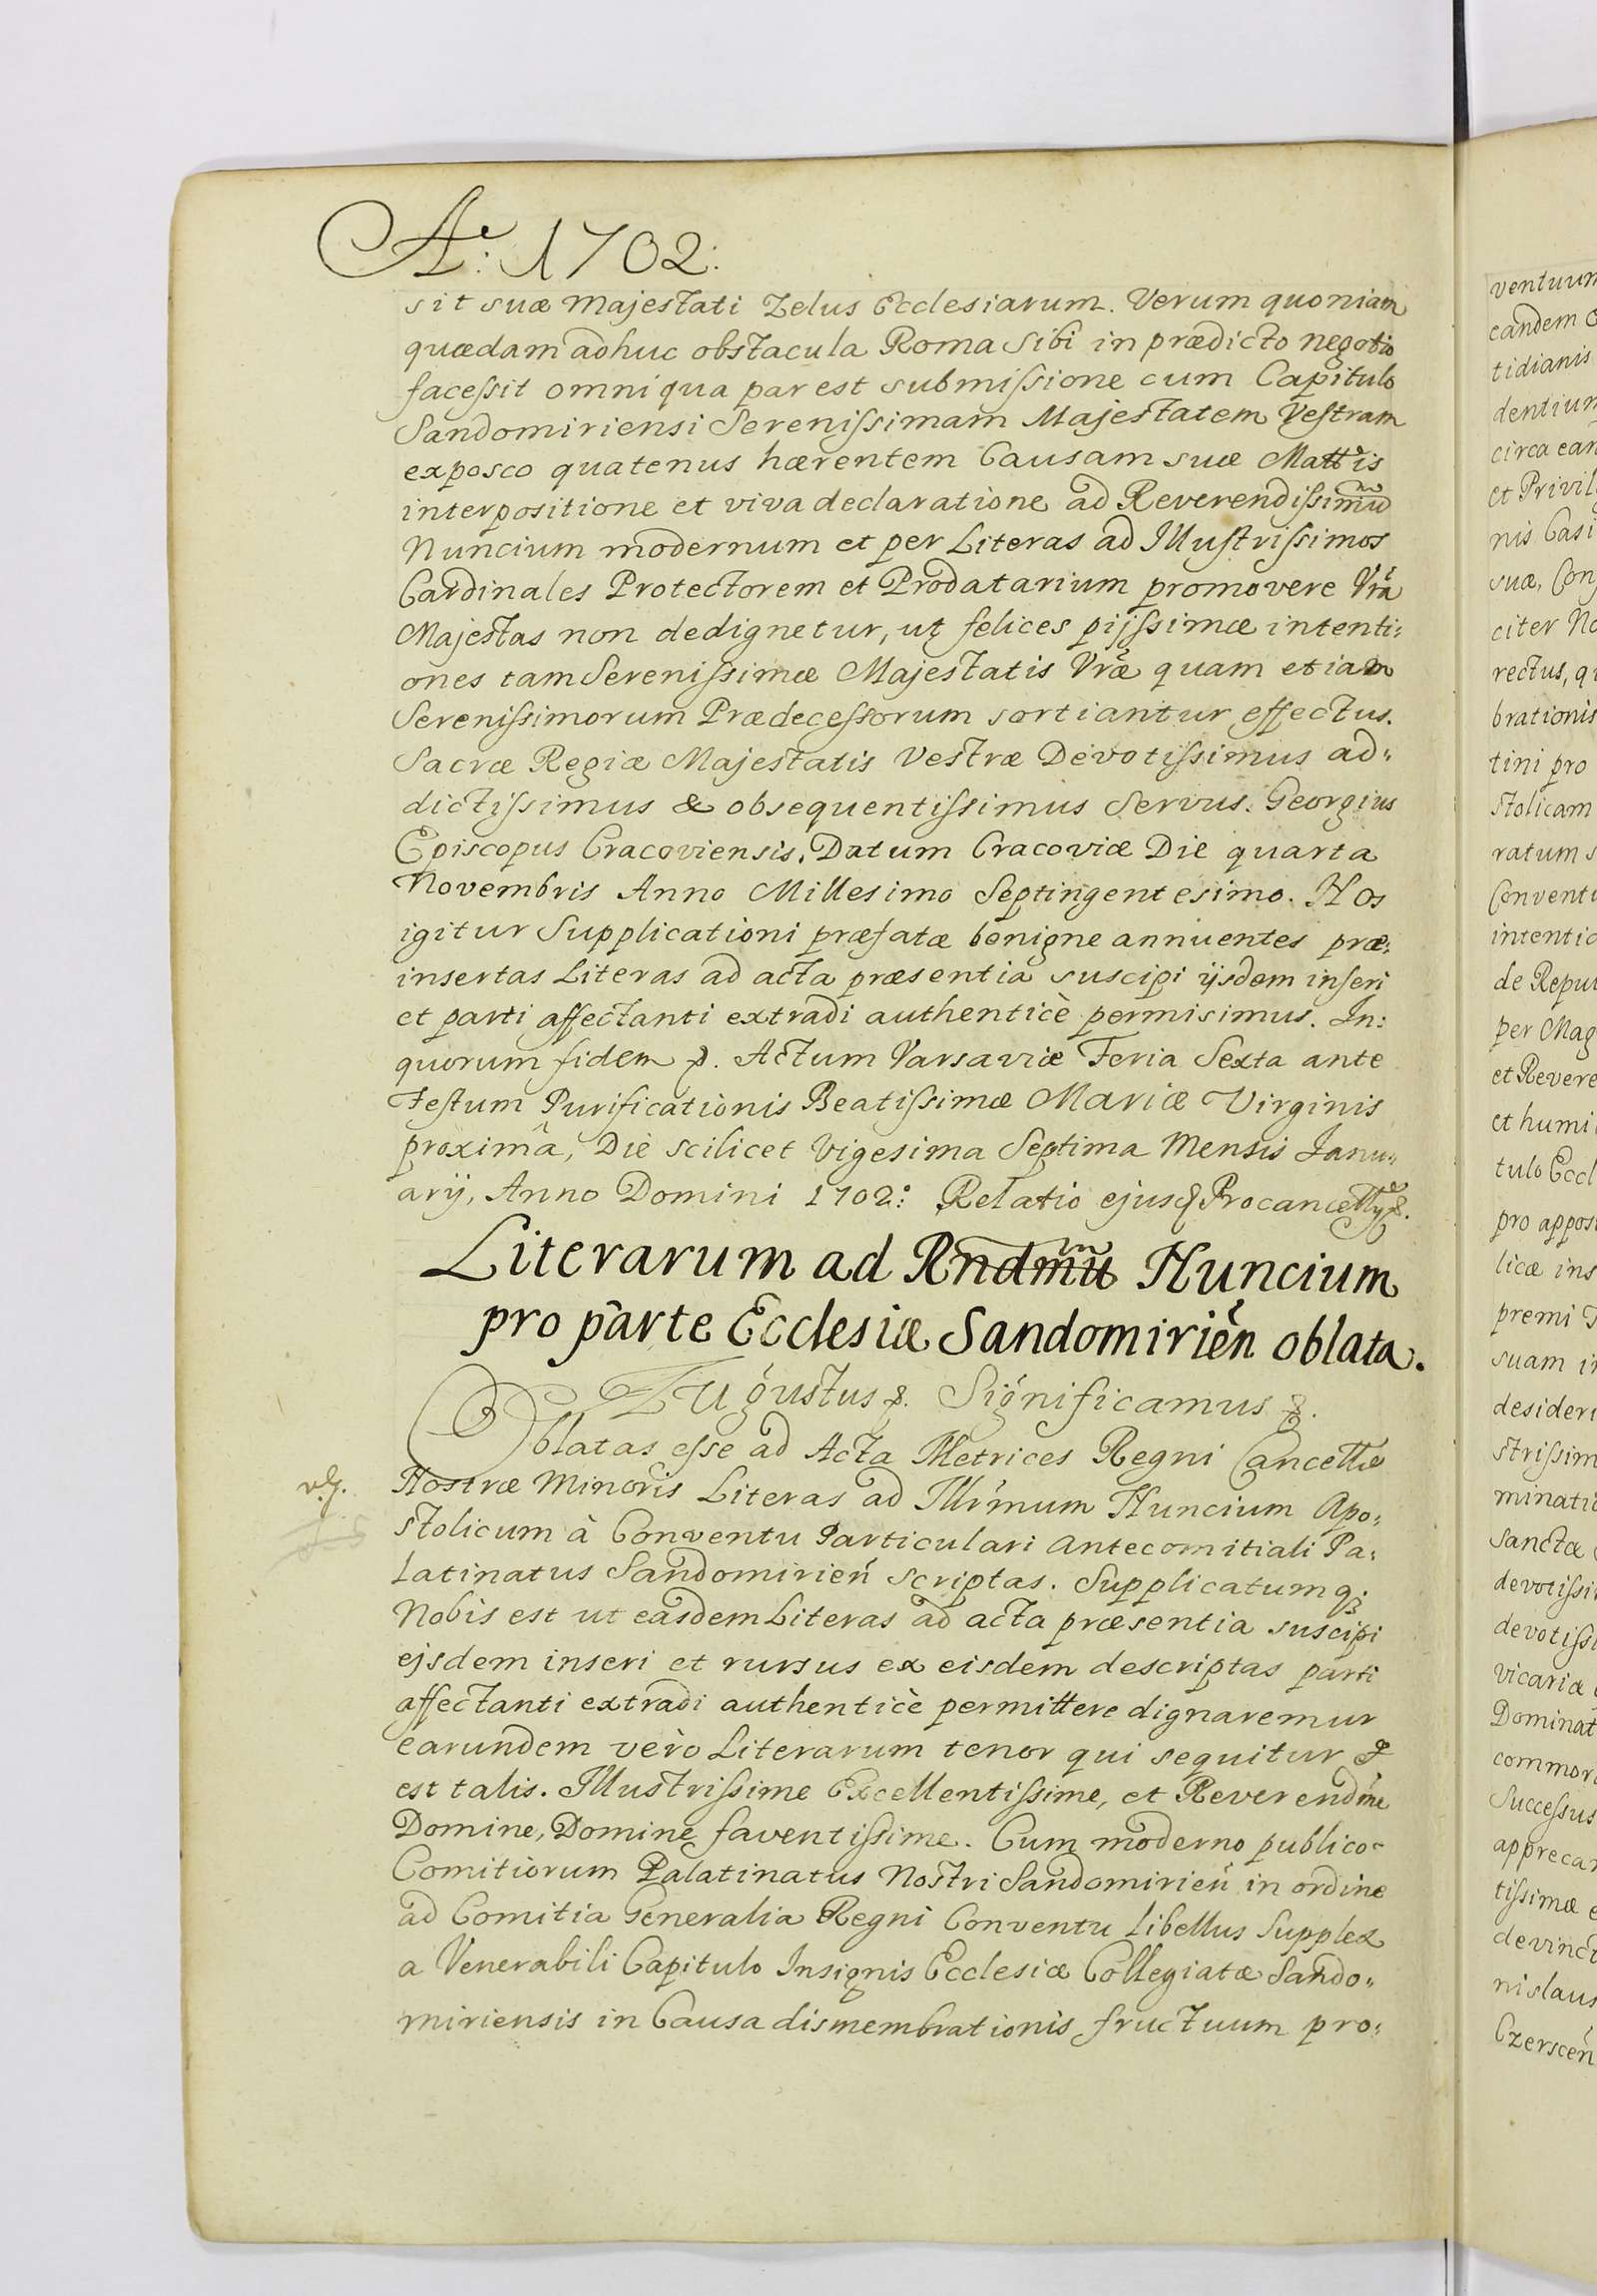 Aº: 1702:
sit suæ Majestati Zelus Ecclesiarum. Verum quoniam
quædam adhuc obstacula Roma Sibi in prædicto negotio
facessit omni qua par est submissione cum Capitulo
Sandomiriensi Serenissimam Majestatem Vestram
exposco quatenus hærentem Causam suæ Mattis
interpositione et viva declaratione ad Reverendissimũ
Nuncium modernum et per Literas ad Illustrissimos
Cardinales Protectorem et Prodatarium promovere Vrã
Majestas non dedignetur, ut felices pijssimæ intenti:
ones tam Serenissimæ Majestatis Vræ quam etiam
Serenissimorum Prædecessorum sortiantur effectus.
Sacræ Regiæ Majestatis Vestræ Devotissimus ad:
dictissimus & obsequentissimus Servus. Georgius
Episcopus Cracoviensis. Datum Cracoviæ Die quarta
Novembris Anno Millesimo Septingentesimo. Nos
igitur Supplicationi præfatæ benigne annuentes præ:
insertas Literas ad acta præsentia suscipi ijsdem inseri
et parti affectanti extradi authenticè permisimus. In:
quorum fidem &. Actum Varsaviæ Feria Sexta ante
Festum Purificationis Beatissimæ Mariæ Virginis
proximâ, Die scilicet Vigesima Septima Mensis Janu:
arij, Anno Domini 1702: Relatio ejusd Procancellrij &.
Literarum ad Rndmũ Nuncium
pro parte Ecclesiæ Sandomirień oblata.
Augustus &. Significamus &.
Oblatas esse ad Acta Metrices Regni Cancellæ
Nostræ Minoris Literas ad Illrmum Nuncium Apo:
stolicum à Conventu Particulari Antecomitiali Pa:
latinatus Sandomirień scriptas. Supplicatumq;
Nobis est ut easdem Literas ad acta præsentia suscipi
ejsdem inseri et rursus ex eisdem descriptas parti
affectanti extradi authenticè permittere dignaremur
earundem verò Literarum tenor qui sequitur &
est talis. Illustrissime Excellentissime, et Reverendme
Domine, Domine faventissime. Cum moderno publico
Comitiorum Palatinatus Nostri Sandomirień in ordine
ad Comitia Generalia Regni Conventu libellus Supplex
a Venerabili Capitulo Insignis Ecclesiæ Collegiatæ Sando:
miriensis in Causa dismembrationis fructuum pro:
ventuum
eandem
tidianis
dentium
circa ean
et Privil
nis Casi
suæ, Con
citer No
rectus, q
brationis
tini pro
stolicam
ratum s
Conventu
intentio
de Repu
per Mag
et Revere
et humi
tulo Eccl
pro appos
licæ ins
premi
suam in
desideri
strissim
minatio
Sanctæ
devotissi
devotissi
vicariæ
Dominat
commor
Successus
appreca
tissimæ
devinct
nislaus
Czersceń